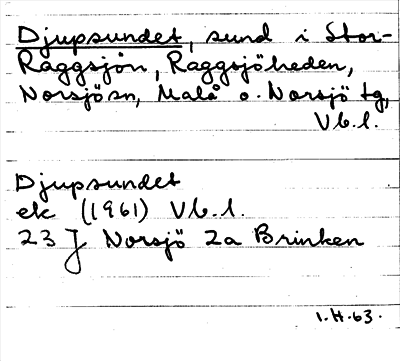 Djupsundet, sund i Stor-
Raggsjön, Raggsjöheden,
Norsjösn, Malå o. Norsjö tg,
Vb.l.
Djupsundet
ek (1961) Vb.l.
23 J Norsjö 2a Brinken
1.H.63.